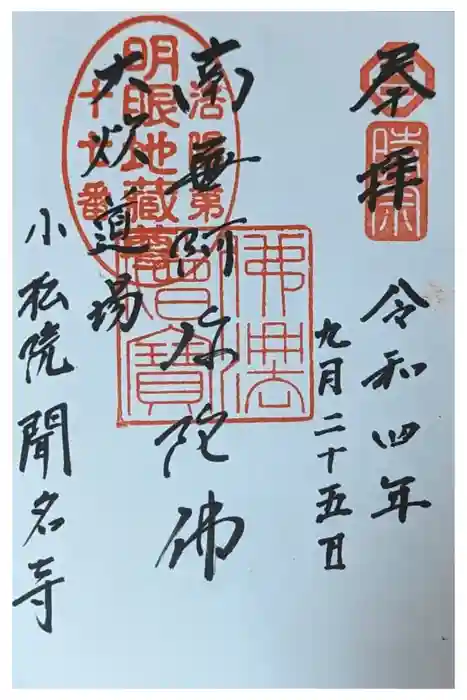 奉拝
時宗
令和四年
九月二十五日
南無阿弥陀佛
佛法僧寳
洛陽第
明眼地蔵尊
十七番
大炊道場
小松院聞名寺